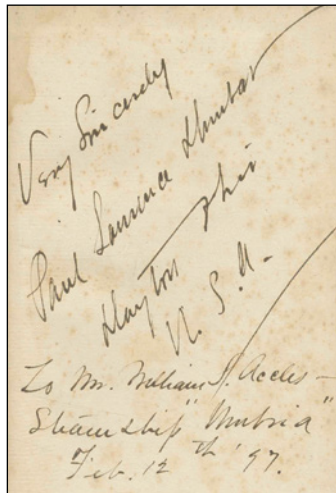 Very Sincerely
Paul Laurence Dunbar
Dayton Ohio
U. S. A-
To Mr. William S. Accles -
Steamship "Umbria"
Feb. 12th '97.